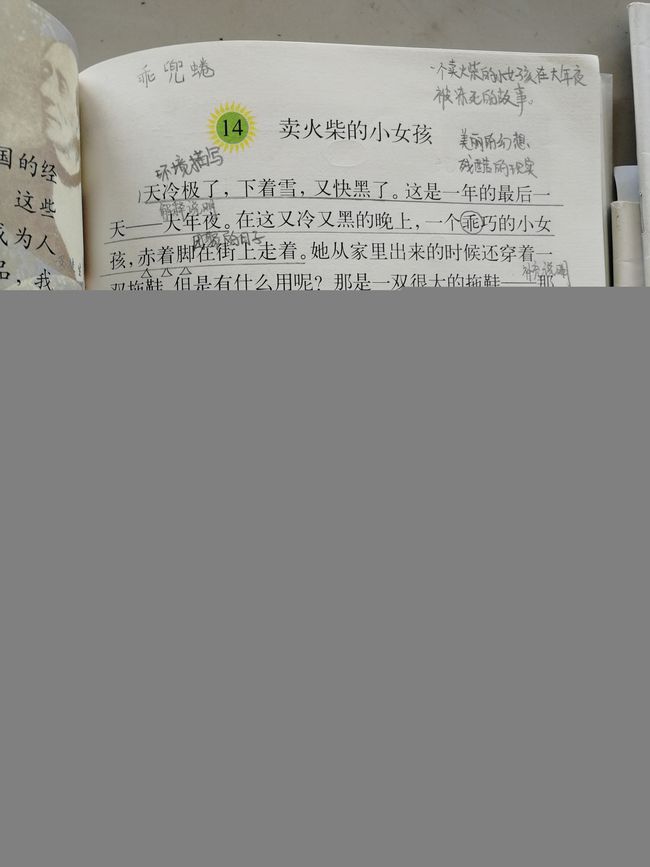 乖 兜 蜷
一个卖火柴的小女孩在大年夜
被冻死的故事。
14 卖火柴的小女孩
美丽的幻想
残酷的现实
环境描写
天冷极了，下着雪，又快黑了。这是一年的最后一
解释说明
天——大年夜。在这又冷又黑的晚上，一个乖巧的小女
孩，赤着脚在街上走着。她从家里出来的时候还穿着一
补充说明
双拖鞋，但是有什么用呢？那是一双很大的拖鞋——那
国的经
这些
成为人
品，我